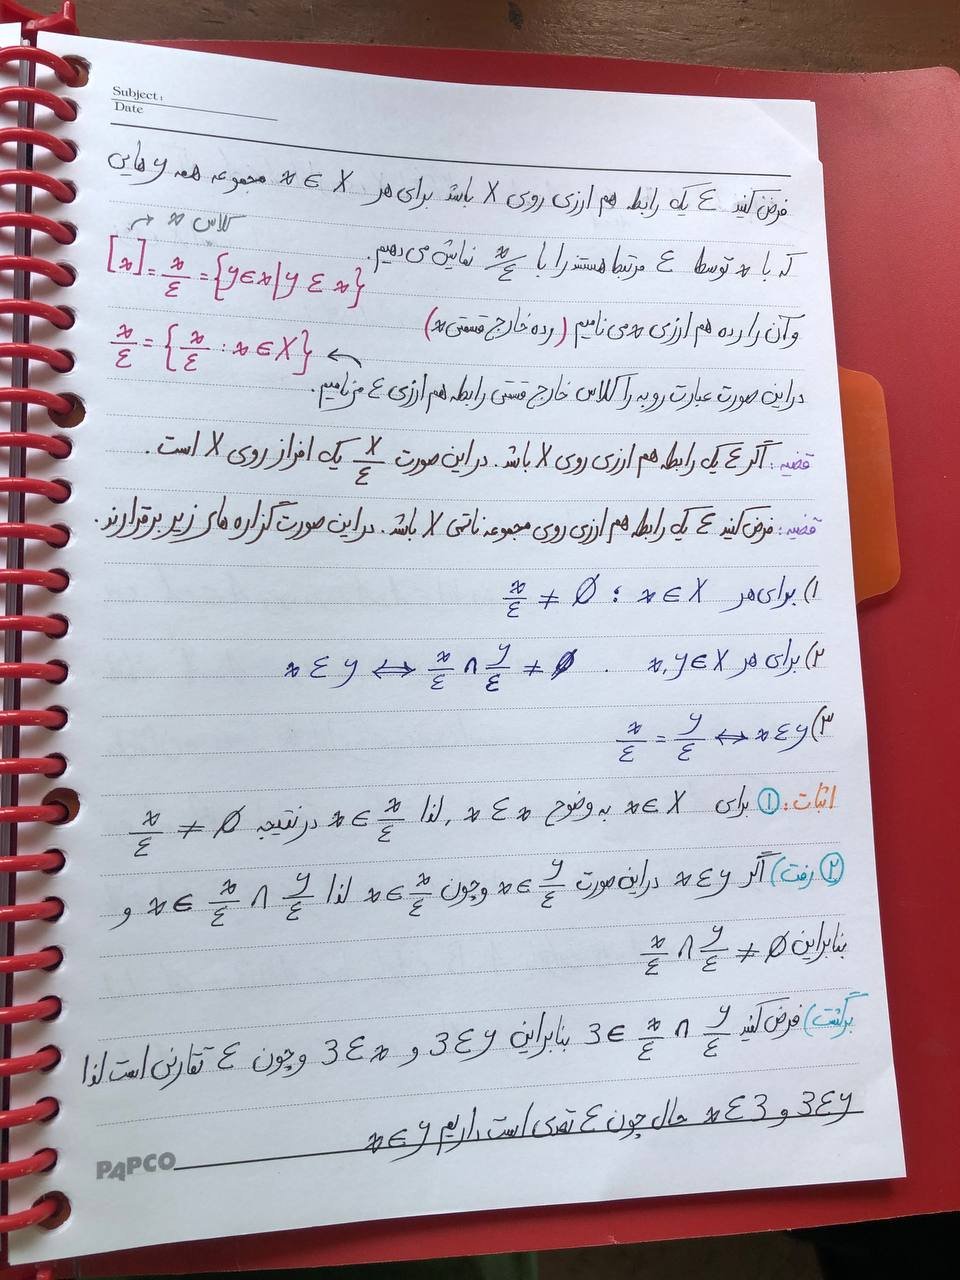 Subject:
Date
فرض کنید ٤ یک رابطه هم ارزی روی X باشد برای هر x ∈ X مجموعه همه y هایی
که با x توسط ٤ مرتبط هستند را با x/٤ نمایش می دهیم.
کلاس x →
[x] = x/٤ = {y∈x | y ٤ x}
و آن را رده هم ارزی x می نامیم (رده خارج قسمتی x)
x/٤ = {x/٤ : x ∈ X}
در این صورت عبارت روبه را کلاس خارج قسمتی رابطه هم ارزی ٤ می نامیم.
قضیه: اگر ٤ یک رابطه هم ارزی روی X باشد. در این صورت X/٤ یک افراز روی X است.
قضیه: فرض کنید ٤ یک رابطه هم ارزی روی مجموعه ناتهی X باشد. در این صورت گزاره های زیر برقرارند.
۱) برای هر x ∈ X ; x/٤ ≠ ∅
۲) برای هر x,y∈X . x ٤ y ⟺ x/٤ ∩ y/٤ ≠ ∅
۳) x ٤ y ⟺ x/٤ = y/٤
اثبات: ① برای x∈X به وضوح x ٤ x , لذا x ∈ x/٤ در نتیجه x/٤ ≠ ∅
② رفت) اگر x٤y در این صورت x∈ y/٤ و چون x∈ x/٤ لذا x ∈ x/٤ ∩ y/٤ و
بنابراین x/٤ ∩ y/٤ ≠ ∅
برگشت) فرض کنید 3 ∈ x/٤ ∩ y/٤ بنابراین 3٤y و 3٤x و چون ٤ تقارنی است لذا
3٤y و x٤3 حال چون ٤ تعدی است داریم x∈y
PAPCO